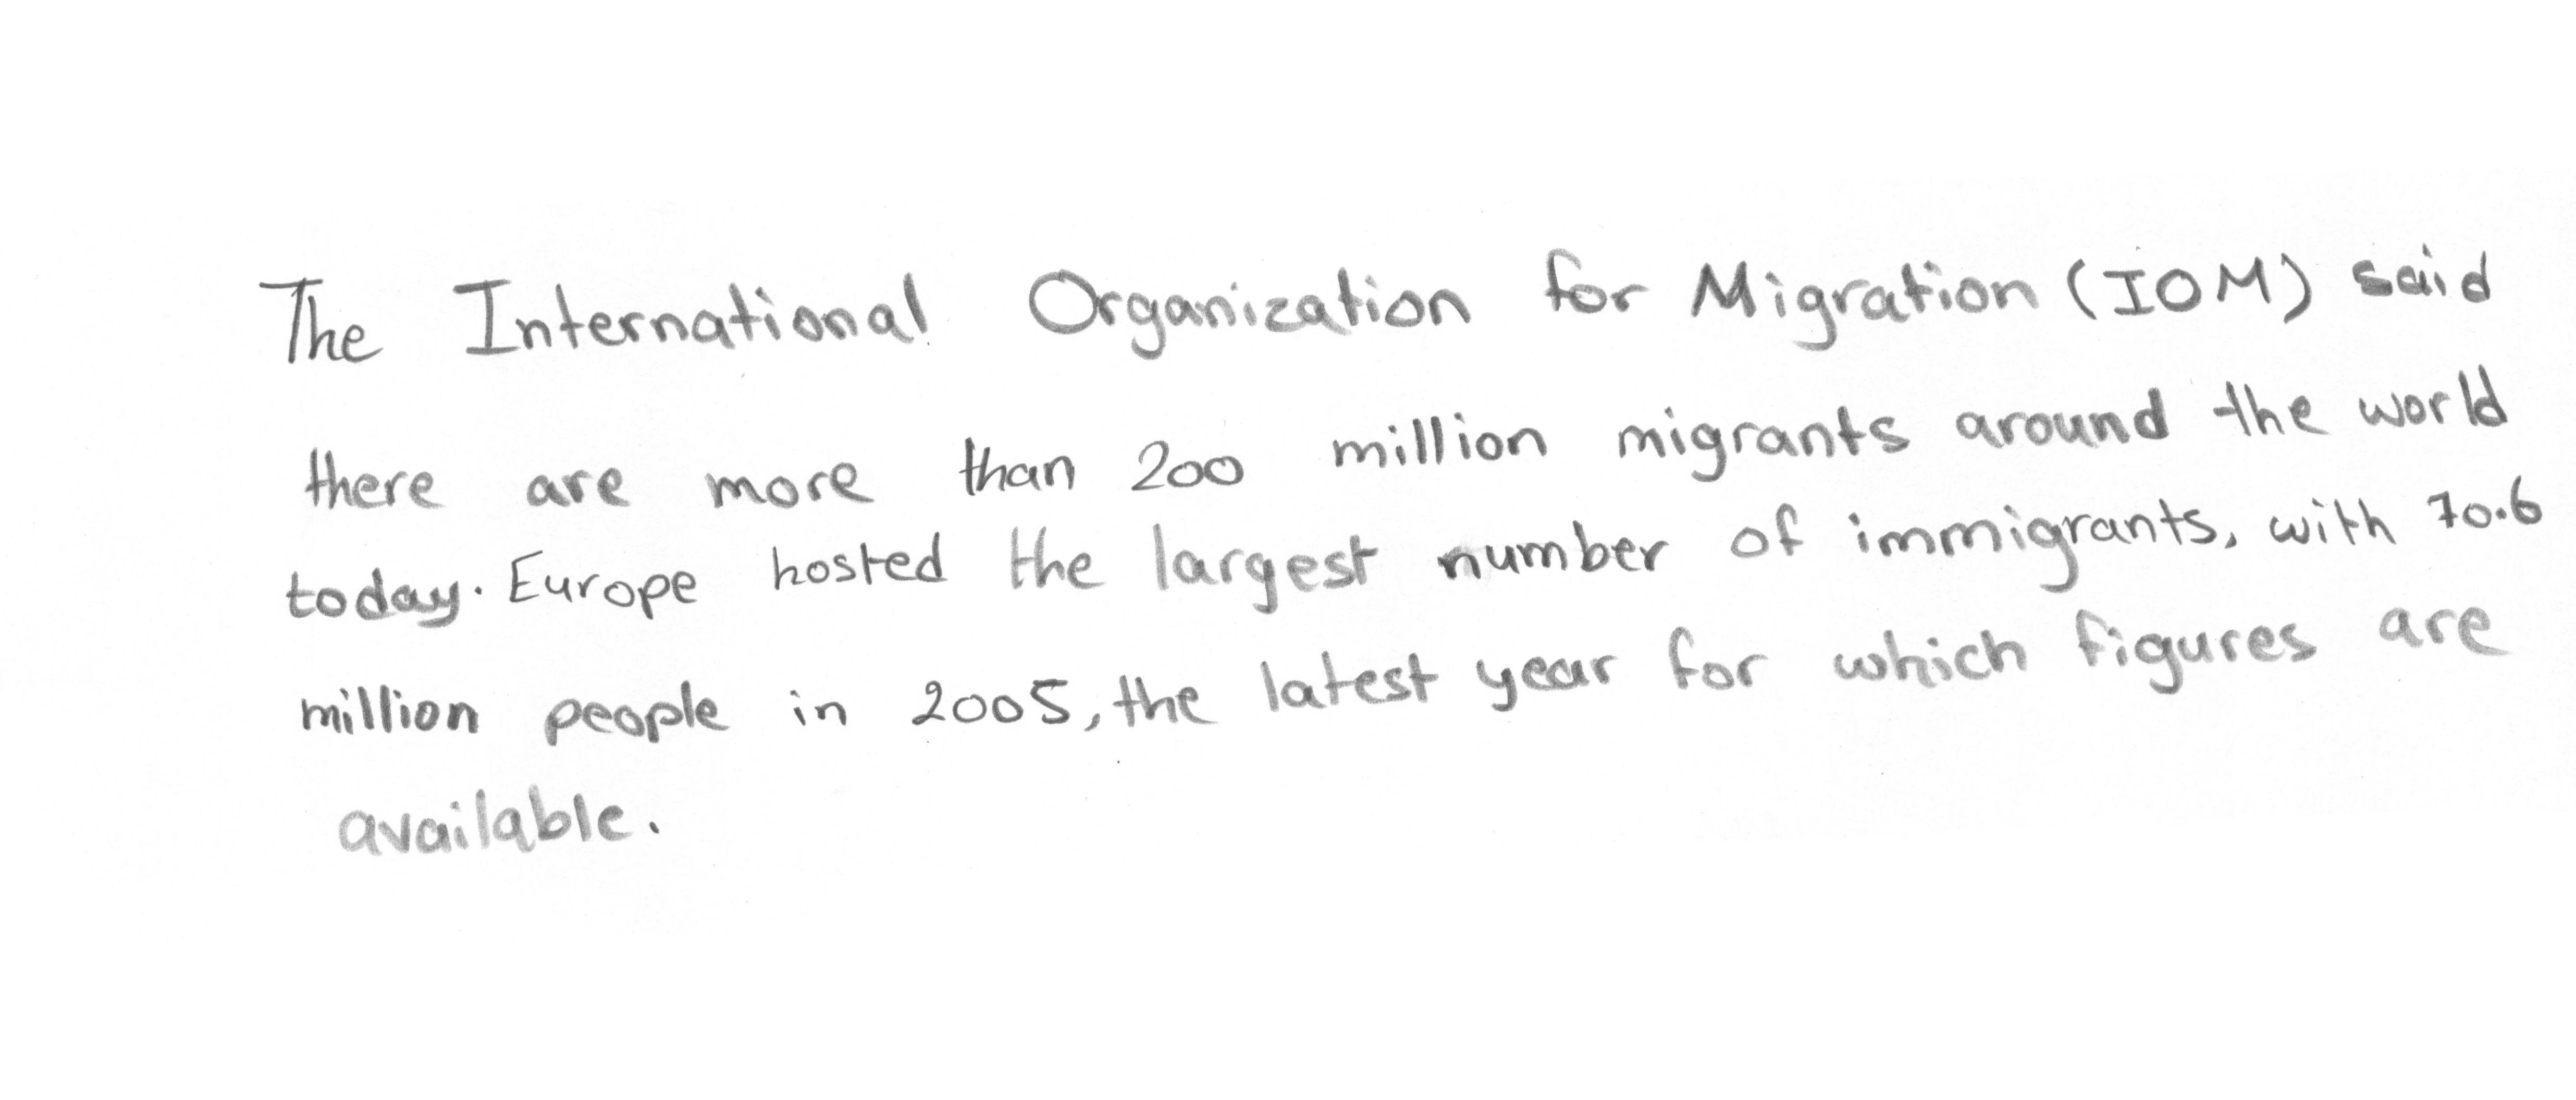 The International Organization for Migration (IOM) said
there are more than 200 million migrants around the world
today. Europe hosted the largest number of immigrants, with 70.6
million people in 2005, the latest year for which figures are
available.